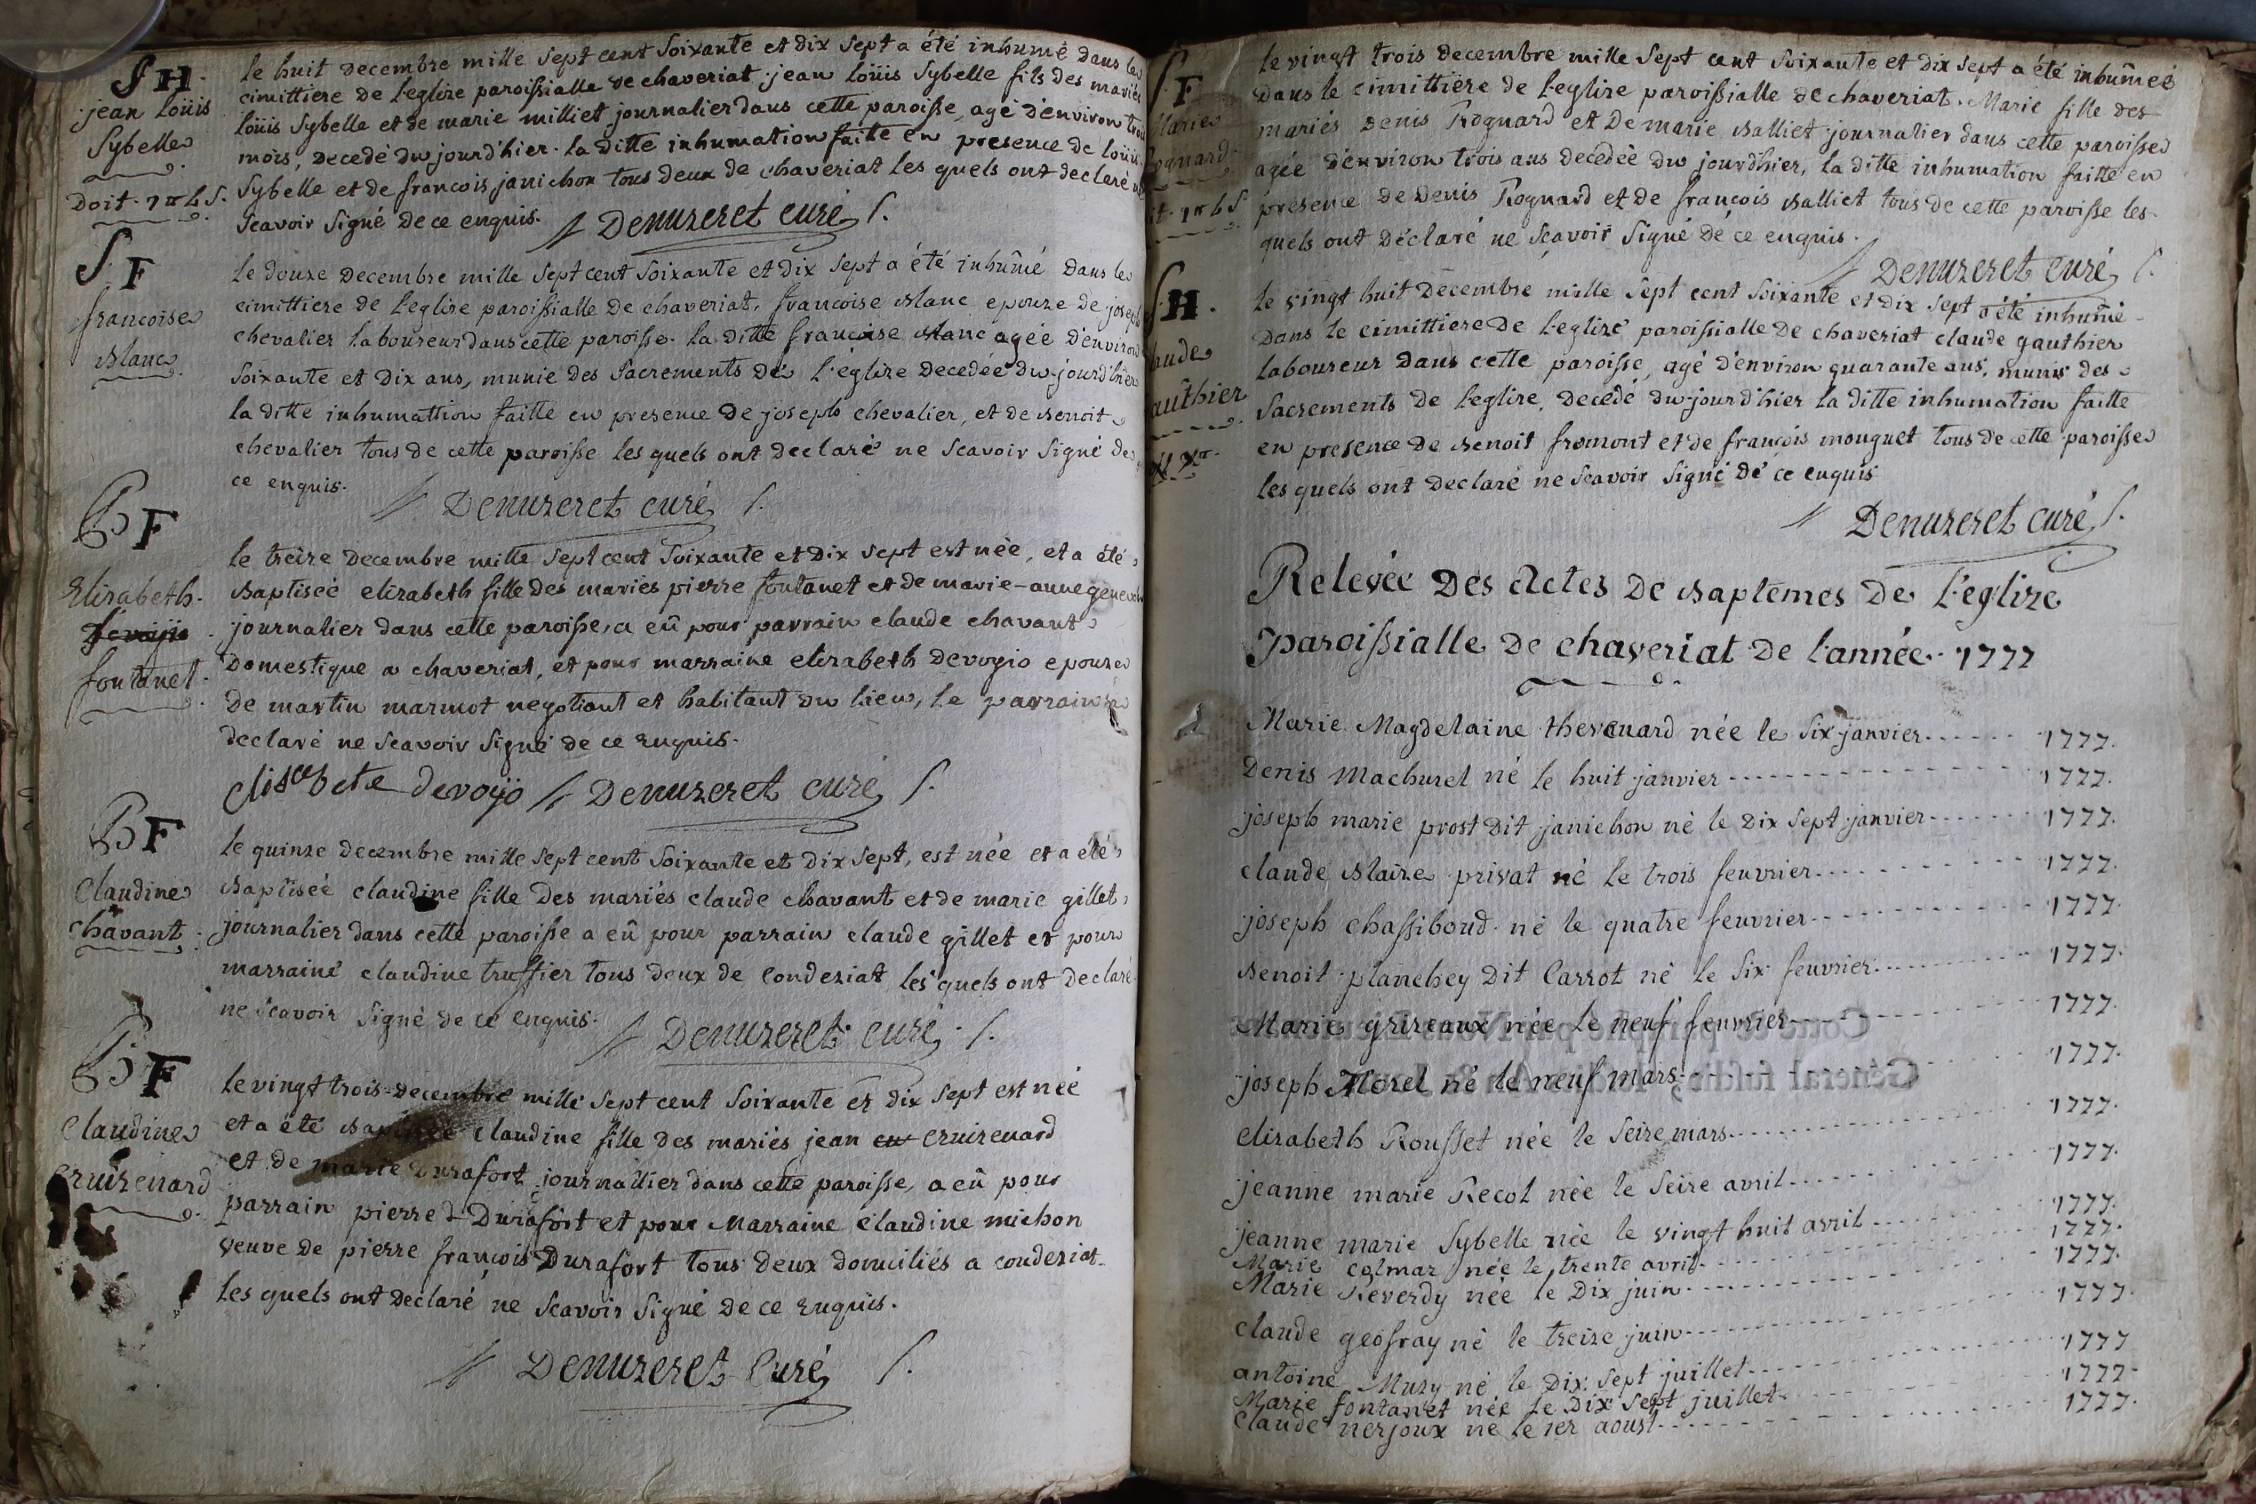 S H.
jean Loüis
Sybelle
Doit. 7
le huit decembre mille sept cent soixante et dix sept a été inhumé dans le
cimittiere de l'eglize paroissialle de chaveriat jean loüis Sybelle fils des mariés
loüis Sybelle et de marie milliet journalier dans cette paroisse, agé d'environ trois
mois, decedé du jourd'hier. la ditte inhumation faite en presence de loüis
Sybelle et de francois janichon tous deux de chaveriat les quels ont declaré
scavoir signé de ce enquis. Denuzeret curé
S. F
francoise
blanc
le douze decembre mille sept cent soixante et dix sept a été inhûmé dans le
cimittiere de l'eglize paroissialle de chaveriat, francoise blanc epouze de joseph
chevalier laboureur dans cette paroisse. la ditte francoise blanc agée d'environ
soixante et dix ans, munie des sacrements de l'églize decedée du jourd'hier
la ditte inhumattion faitte en presence de joseph chevalier, et de benoit
chevalier tous de cette paroisse les quels ont declaré ne scavoir signé de
ce enquis. Denuzeret curé
B F
Elizabeth
fontanet
le treize decembre mille sept cent soixante et dix sept est née, et a été
baptiseé elizabeth fille des mariés pierre fontanet et de marie-anne
journalier dans cette paroisse, a eû pour parrain claude chavant
domestique a chaveriat, et pour marraine elizabeth devoyio epouze
de martin marmot negotiant et habitant du lieu, le parrain a
declaré ne scavoir signé de ce enquis.
elisabete devoyo Denuzeret curé
B F
Claudine
chavant
le quinze decembre mille sept cent soixante et dix sept, est née et a été
baptiseé claudine fille des mariés claude chavant et de marie gillet
journalier dans cette paroisse a eû pour parrain claude gillet et pour
marraine claudine truffier tous deux de condeziat les quels ont declaré
ne scavoir signé de ce enquis. Denuzeret curé
B F
Claudine
cruizenard
le vingt trois decembre mille sept cent soixante et dix sept est née
et a été baptizée claudine fille des mariés jean cruizenard
et de marie durafort journallier dans cette paroisse, a eû pour
parrain pierre Durafort et pour Marraine claudine michon
veuve de pierre françois Durafort tous deux domiciliés a condeziat
les quels ont declaré ne scavoir signé de ce enquis.
Denuzeret Curé
S. F
Marie
Rognard
le vingt trois decembre mille sept cent soixante et dix sept a été inhûmeé
dans le cimittiere de l'eglize paroissialle de chaveriat. Marie fille des
mariés denis Rognard et de marie balliet journalier dans cette paroisse
agée d'environ trois ans decedée du jourd'hier, la ditte inhumation faitte en
présence de Denis Rognard et de françois balliet tous de cette paroisse les
quels ont déclaré ne scavoir signé de ce enquis.
Denuzeret curé
S H.
claude
gauthier
le vingt huit decembre mille sept cent soixante et dix sept a été inhumé
dans le cimittiere de l'eglize paroissialle de chaveriat claude gauthier
laboureur dans cette paroisse, agé d'environ quarante ans, munis des
sacrements de l'eglize, decedé du jourd'hier la ditte inhumation faitte
en presence de benoit fromont et de françois monguet tous de cette paroisse
les quels ont declaré ne scavoir signé de ce enquis
Denuzeret curé
Relevée Des Actes De baptemes de l'églize
paroissialle de chaveriat de l'année. 1777
Marie Magdelaine thevenard née le six janvier 1777.
Denis Machurel né le huit janvier 1777.
joseph marie prost dit janichon né le dix sept janvier 1777.
claude blaize privat né le trois feuvrier 1777.
joseph chassiboud né le quatre feuvrier 1777.
benoit planchey dit Carrot né le six feuvrier 1777.
Marie grizeaux née le neuf feuvrier 1777.
joseph Morel né le neuf mars 1777.
elizabeth Rousset née le seize mars 1777.
jeanne marie Recol née le seize avril 1777.
jeanne marie Sybelle née le vingt huit avril 1777.
Marie colmar née le trente avril 1777.
Marie Reverdy née le dix juin 1777.
claude geofray né le treize juin 1777.
antoine Muzy né le dix sept juillet 1777
Marie fontanet née le dix sept juillet 1777.
Claude nerjoux né le 1er aoust 1777.